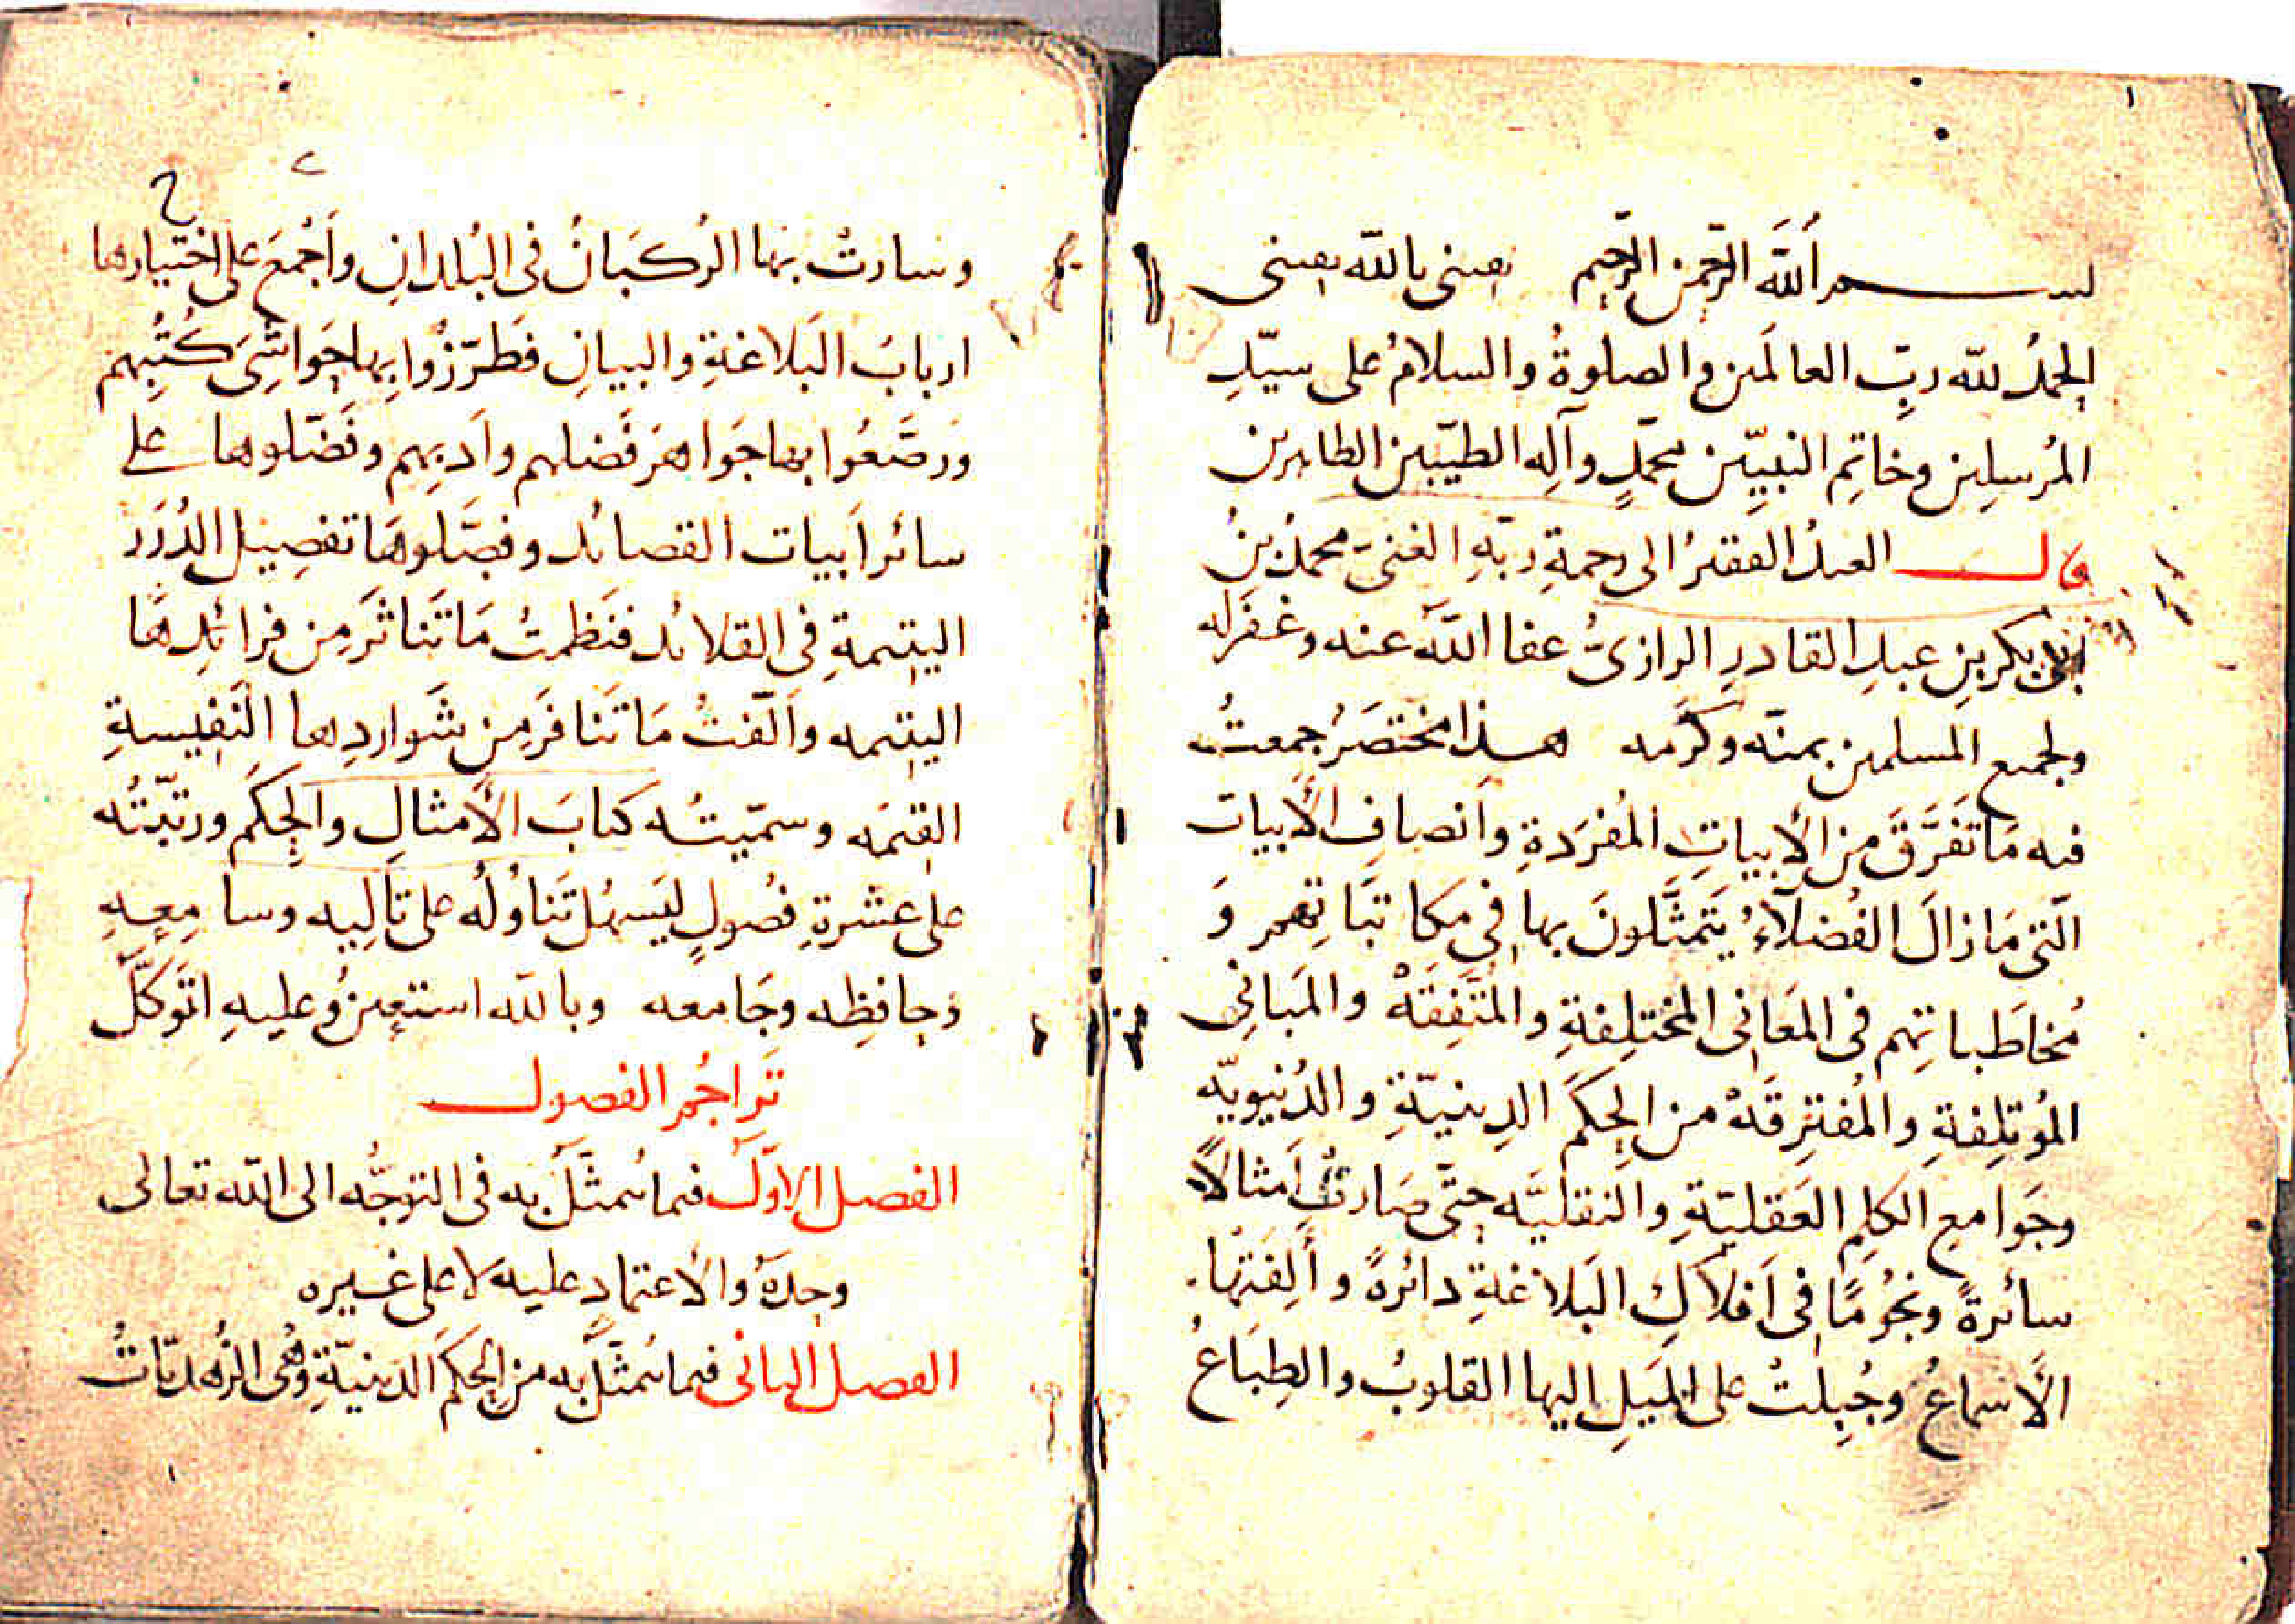 بسم الله الرحمن الرحيم نعيني بالله نعيني
الحمدُ لله ربِّ العالمَين والصلوةُ والسلامُ على سيّدِ
المُرسلِين وخاتِمِ النبيّين محمّدٍ وآلِه الطيّبين الطاهرين
قال العبدُ الفقيرُ الى رحمةِ ربّهِ الغنىّ محمدُ بنُ
ابى بكر بنِ عبدِ القادرِ الرازىُّ عفا اللّه عنه وغَفَرَله
ولجميع المسلمين بمنّه وكَرَمه هذا مختصَرُ جمعتُ
فيه مَا تَفَرَّقَ من الأبياتِ المُفرَدةِ وأنصافِ الأبيات
الّتى مَا زالَ الفُضلآءُ يَتَمثَّلونَ بها فِي مكاتبَاتِهم وَ
مُخاطَباتِهم فى المَعَانى المختلِفةِ والمُتَّفِقَةْ والمَبانِى
المُؤتلِفةِ والمُفترِقَهْ من الحِكَم الدِينيّةِ والدُنيويّه
وجَوامعِ الكلِمِ العَقليّةِ والنَقليَّه حتَّى صَارتْ أمثالاً
سائرةً ونجُومًا فى أفلاكِ البَلاغةِ دائرةً وأَلِفَتْها
الأَسماعُ وجُبِلتْ على المَيلِ اليها القلوبُ والطِبَاعُ
وسارتْ بها الرُكبَانُ فى البُلدانِ وأَجمَعَ على اختيارها
اربابُ البَلاغةِ والبيانِ فطَرّزُوا بها حَوَاشِىَ كُتُبِهم
ورَصَّعُوا بها جَواهرَ فَضلهم وأَدبِهم وفَضّلوها على
سائر أبيات القصائد وفصَّلوهَا تفصِيل الدُرَر
اليتيمةِ فى القلائد فنَظمتُ مَا تَناثَرَ مِن فرائِدِها
اليتيمه وأَلّفتُ مَا تَنافَرَ مِن شَوارِدها النَفِيسةِ
القيّمَه وسمّيتُه كتابَ الأمثالِ والحِكَم ورتّبتُه
على عشرةِ فصُولٍ ليَسهُلَ تَناوُلُه على تالِيه وسامِعِهِ
وحافِظِه وجَامعه وبالله استعِينُ وعليهِ اتَوكَّلُ
تَراجُم الفصول
الفصل الاوّل فيما يُتمثَّل به فى التوَجُّه الى اللّه تعالى
وحدَهُ والاعتمادِ عليه لا على غيره
الفصل الثانى فيما يُتمثَّل به من الحِكَم الدينيّةِ وهى الزُهديّاتُ